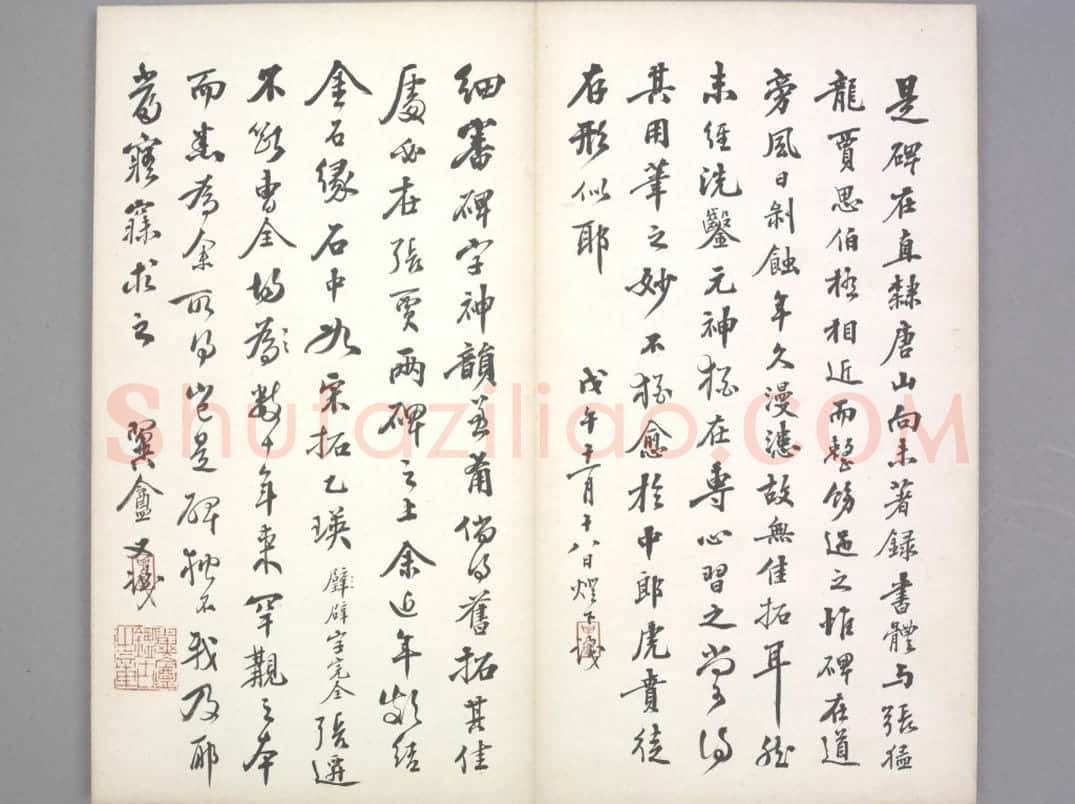 是碑在直隸唐山向未著録書體与張猛
龍賈思伯極相近而整飭過之惟碑在道
旁風日剝蝕年久漫漶故無佳拓耳然
未經洗鑿元神猶在專心習之當得
其用筆之妙不猶愈於中郎虎賁徒
存形似耶
戊午十二月十八日燈下
細審碑字神韻並茂倘得舊拓其佳
處必在張賈兩碑之上余近年頗結
金石緣石中如宋拓乙瑛
辟字完全
張遷
不斷曹全均為數十年來罕覯之本
而悉為余所得豈是碑獨不我及耶
當寤寐求之
翼盦又識
Shufaziliao.COM